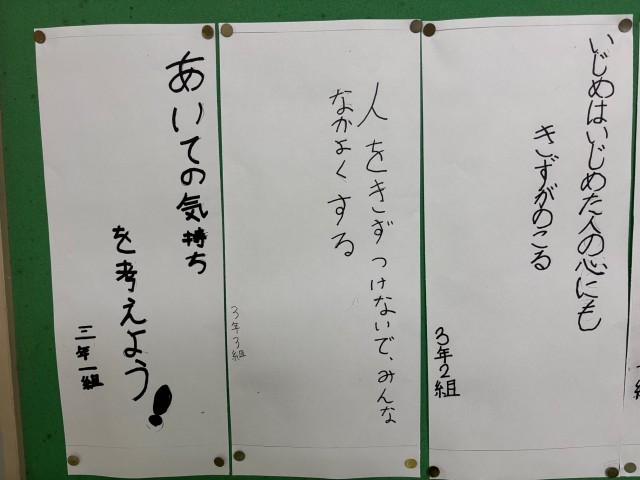 いじめはいじめた人の心にも
きずがのこる
3年2組
人をきずつけないで、みんな
なかよくする
3年3組
あいての気持ち
を考えよう!
三年一組